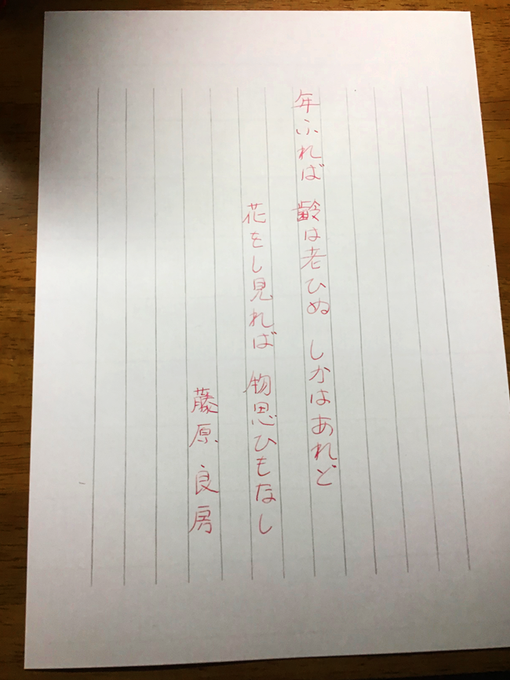 年ふれば 齢は老ひぬ しかはあれど
花をし見れば 物思ひもなし
藤原良房